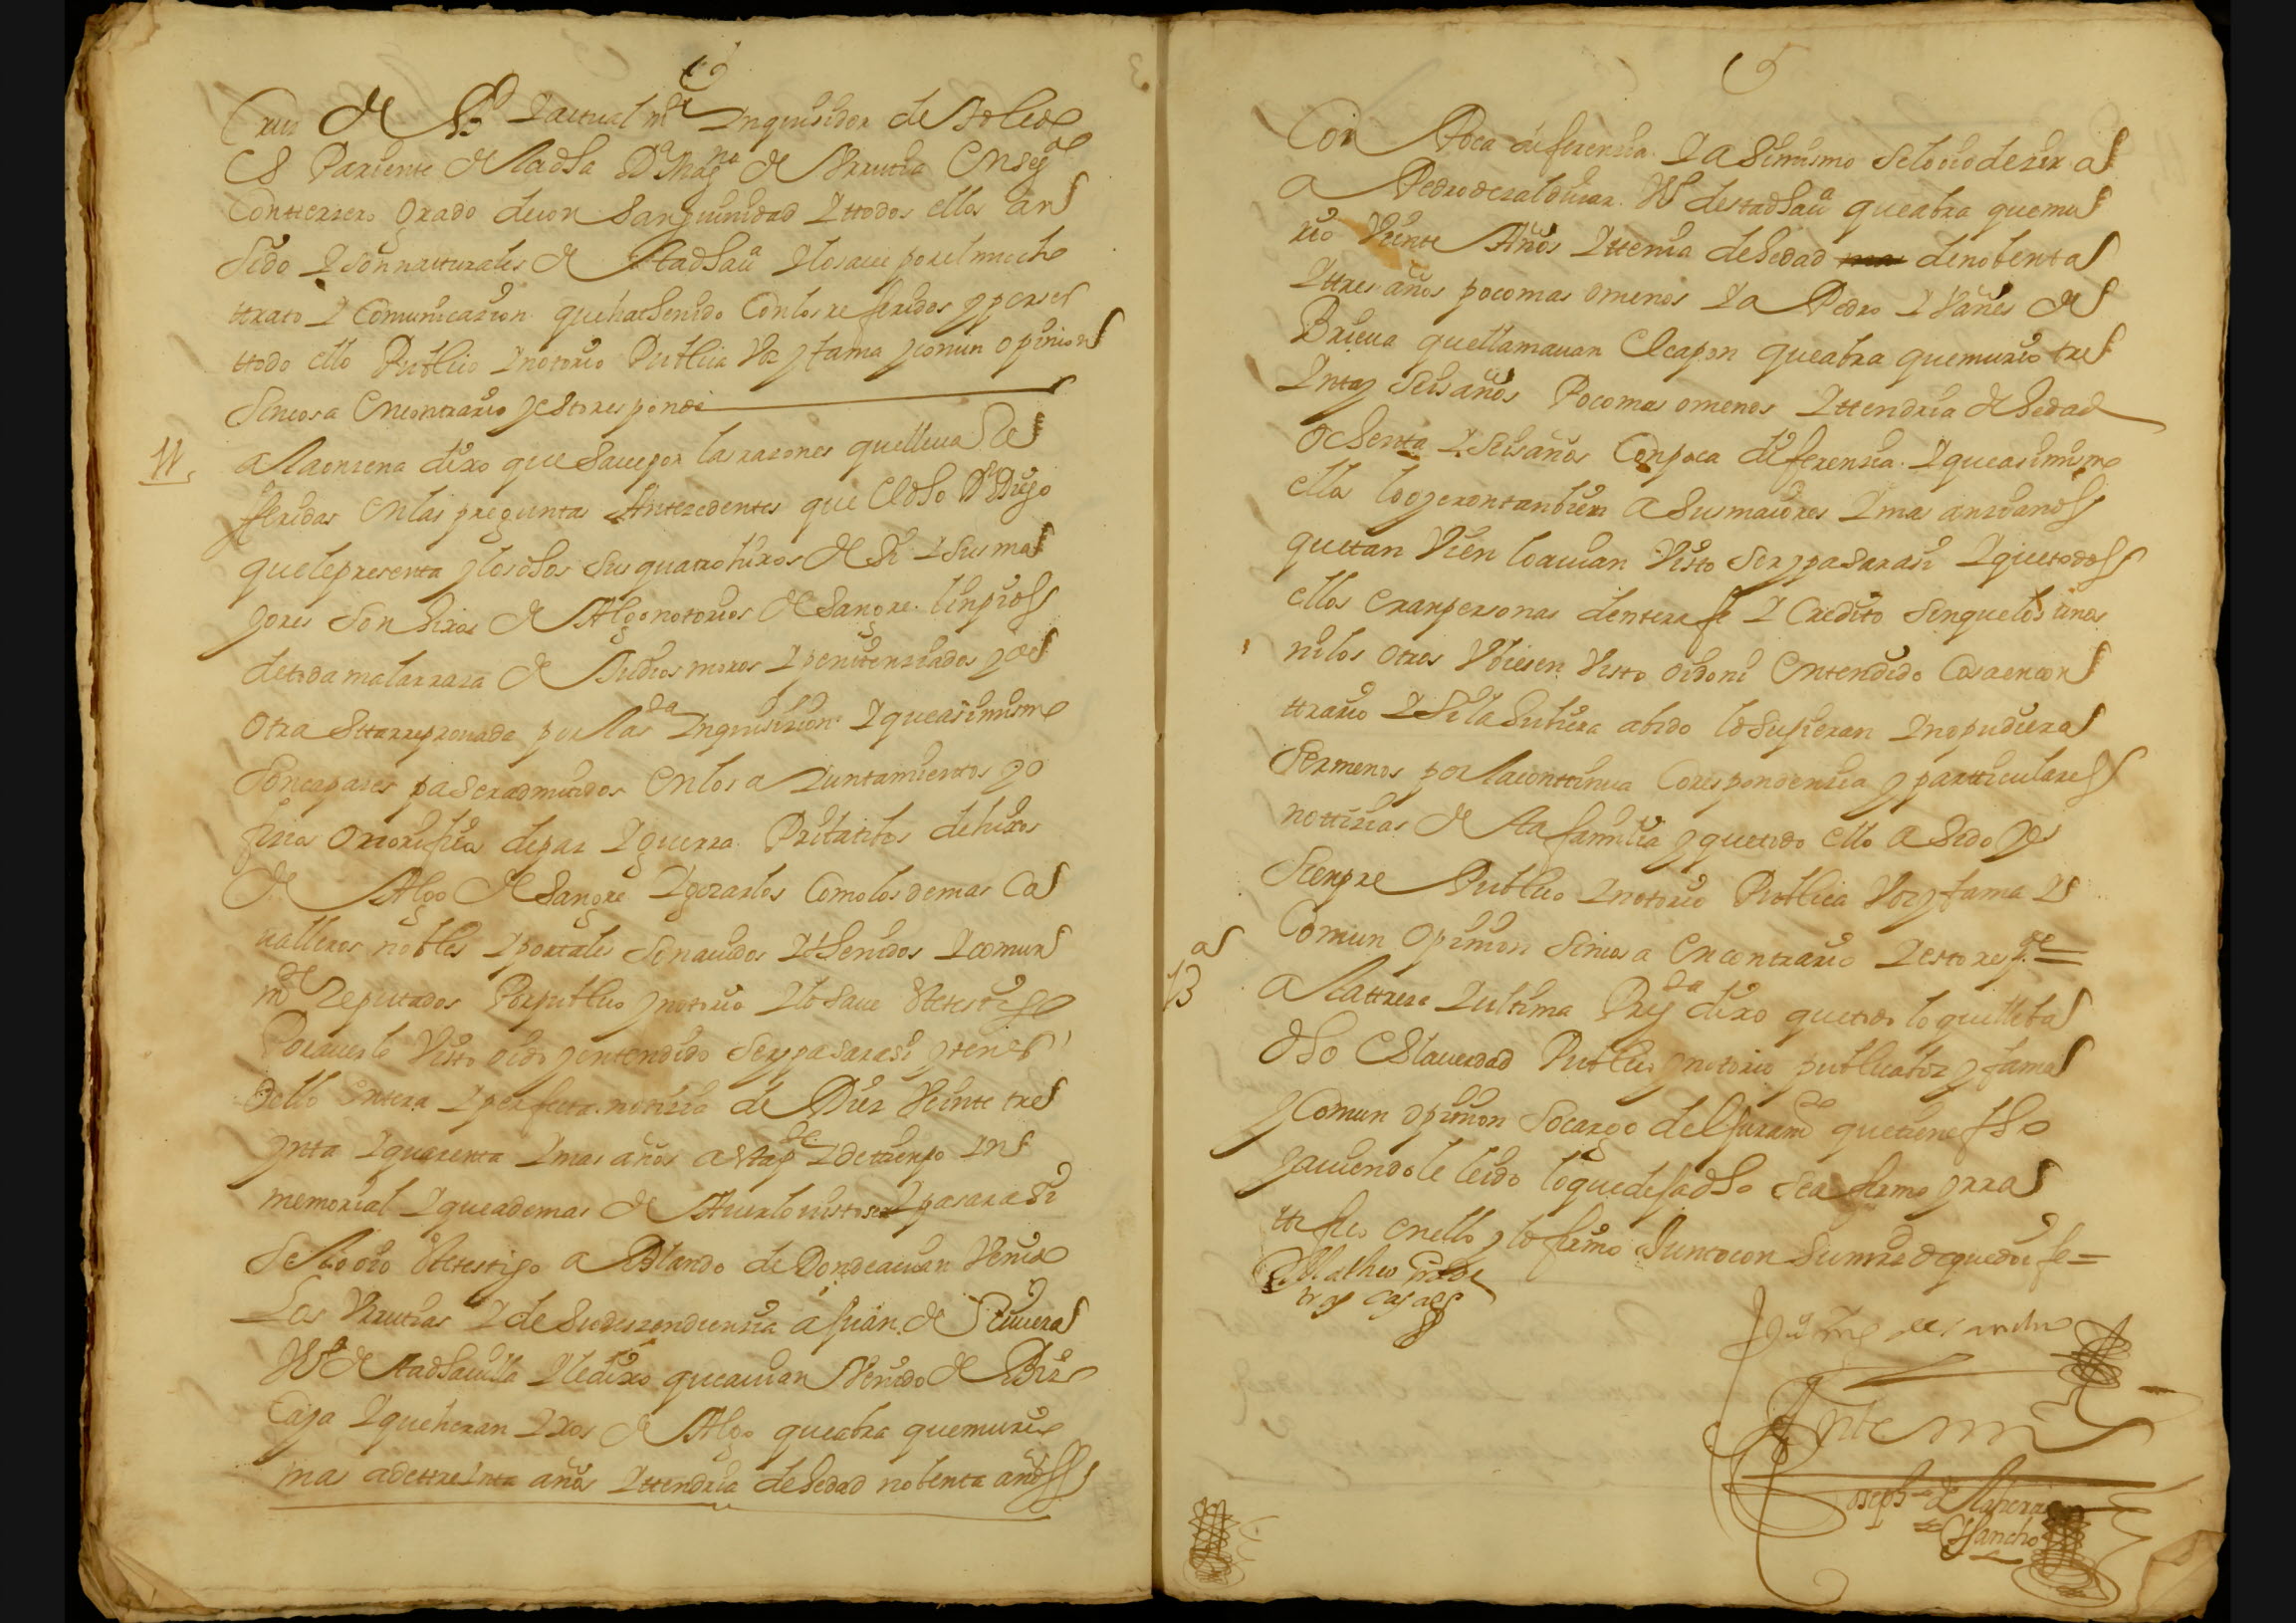 Cruz de S.to Y actual m.te Ynquisidor de Toledo
Es Pariente de la dha D.a Mag.na de Urrutia En seg.do
Con terzero grado de con Sanguinidad Y ttodos ellos an
Sido Y son natturales de Sta dha u.a Y lo saue por el mucho
ttrato Y Comunicazion que ha thenido Con los referidos y por ser
ttodo ello Publico Y notorio Publica Voz y fama y comun opinion
Sin cosa En contrario y esto responde
11. a la onzena dixo que Saue por las razones que lleua Re
feridas En las preguntas Antezedentes que El dho D.n Diego
que le presenta y los dhos sus quatro hixos de Si Y Sus ma
yores son hixos de Algo notorios de Sangre limpios
de toda mala rraza de Judios moros Y penitenziados y de
otra Setta rreprouada por la S.ta Ynquisizion Y que asimismo
Son capazes p.a Ser admitidos En los aYuntamientos y o
fizios onorificos de paz Y guerra Pribatibos de hixos
de Algo de Sangre Y gozarlos Como los demas Ca
ualleros nobles Y por tales Son auidos Y thenidos Y comun
m.te Reputados Por publico y notorio Y lo saue Este testigo
Por auerlo Visto oido y entendido Ser y pasar asi y tener
dello Entera Y perfecta notizia de Diez Veinte tre
ynta Y quarenta Y mas años a esta p.te Y de tiempo Yn
memorial Y que ademas de Auerlo uisto ser Y pasar asi
Se lo oio Este testigo a Blando de Donde auian Venido
Los Urrutias Y de Su deszendienzia a Juan de Riuera
V.o de Sta dha uilla Y le dixo que auian Venido de Biz
Caya Y que heran Yxos de Algo que abra que murio
mas de ttreinta años Y ttendria de hedad nobenta años
5
Con Poca diferenzia Y asimismo Se lo oio dezir a
a Pedro de zalduar V.o de esta dha u.a que abra que mu
rio Veinte Años Y ttenia de hedad de nobenta
Y ttres años poco mas o menos Y a Pedro Y Vañes de
Brieua que llamauan El capon que abra que murio tre
Ynta y Seis años Poco mas o menos Y ttendria de hedad
ochenta Y Seis años Con poca diferenzia Y que asimismo
ellos lo oyeron tambien a Sus maiores Y mas anzianos
que tan Vien lo auian Visto Ser y pasar asi Y que todos
ellos eran personas de entera fe Y Credito Sin que los unos
ni los otros Vbiesen Visto oido ni Entendido Cosa en con
ttrario Y Si la hubiera abido lo Supieran Y no pudiera
Ser menos por la conttinua Corespondenzia y particulares
nottizias de Sta familia y que todo ello a Sido y es
Siempre Publico Y notorio Publica Voz y fama Y
Comun opinion Sin cosa En contrario Y esto resp.de =
13 a la ttreze Y ultima Preg.ta dixo que todo lo que lleba
dho Es la uerdad Publico y notorio publica boz y fama
y Comun opinion So cargo del Juram.to que tiene fho
y auiendole leido lo que deja dho Se afirmo y rra
ttifico en ello y lo firmo Junto con Su mrd de que doi fe =
Matheo
Ante mi
Joseph de
Sancho